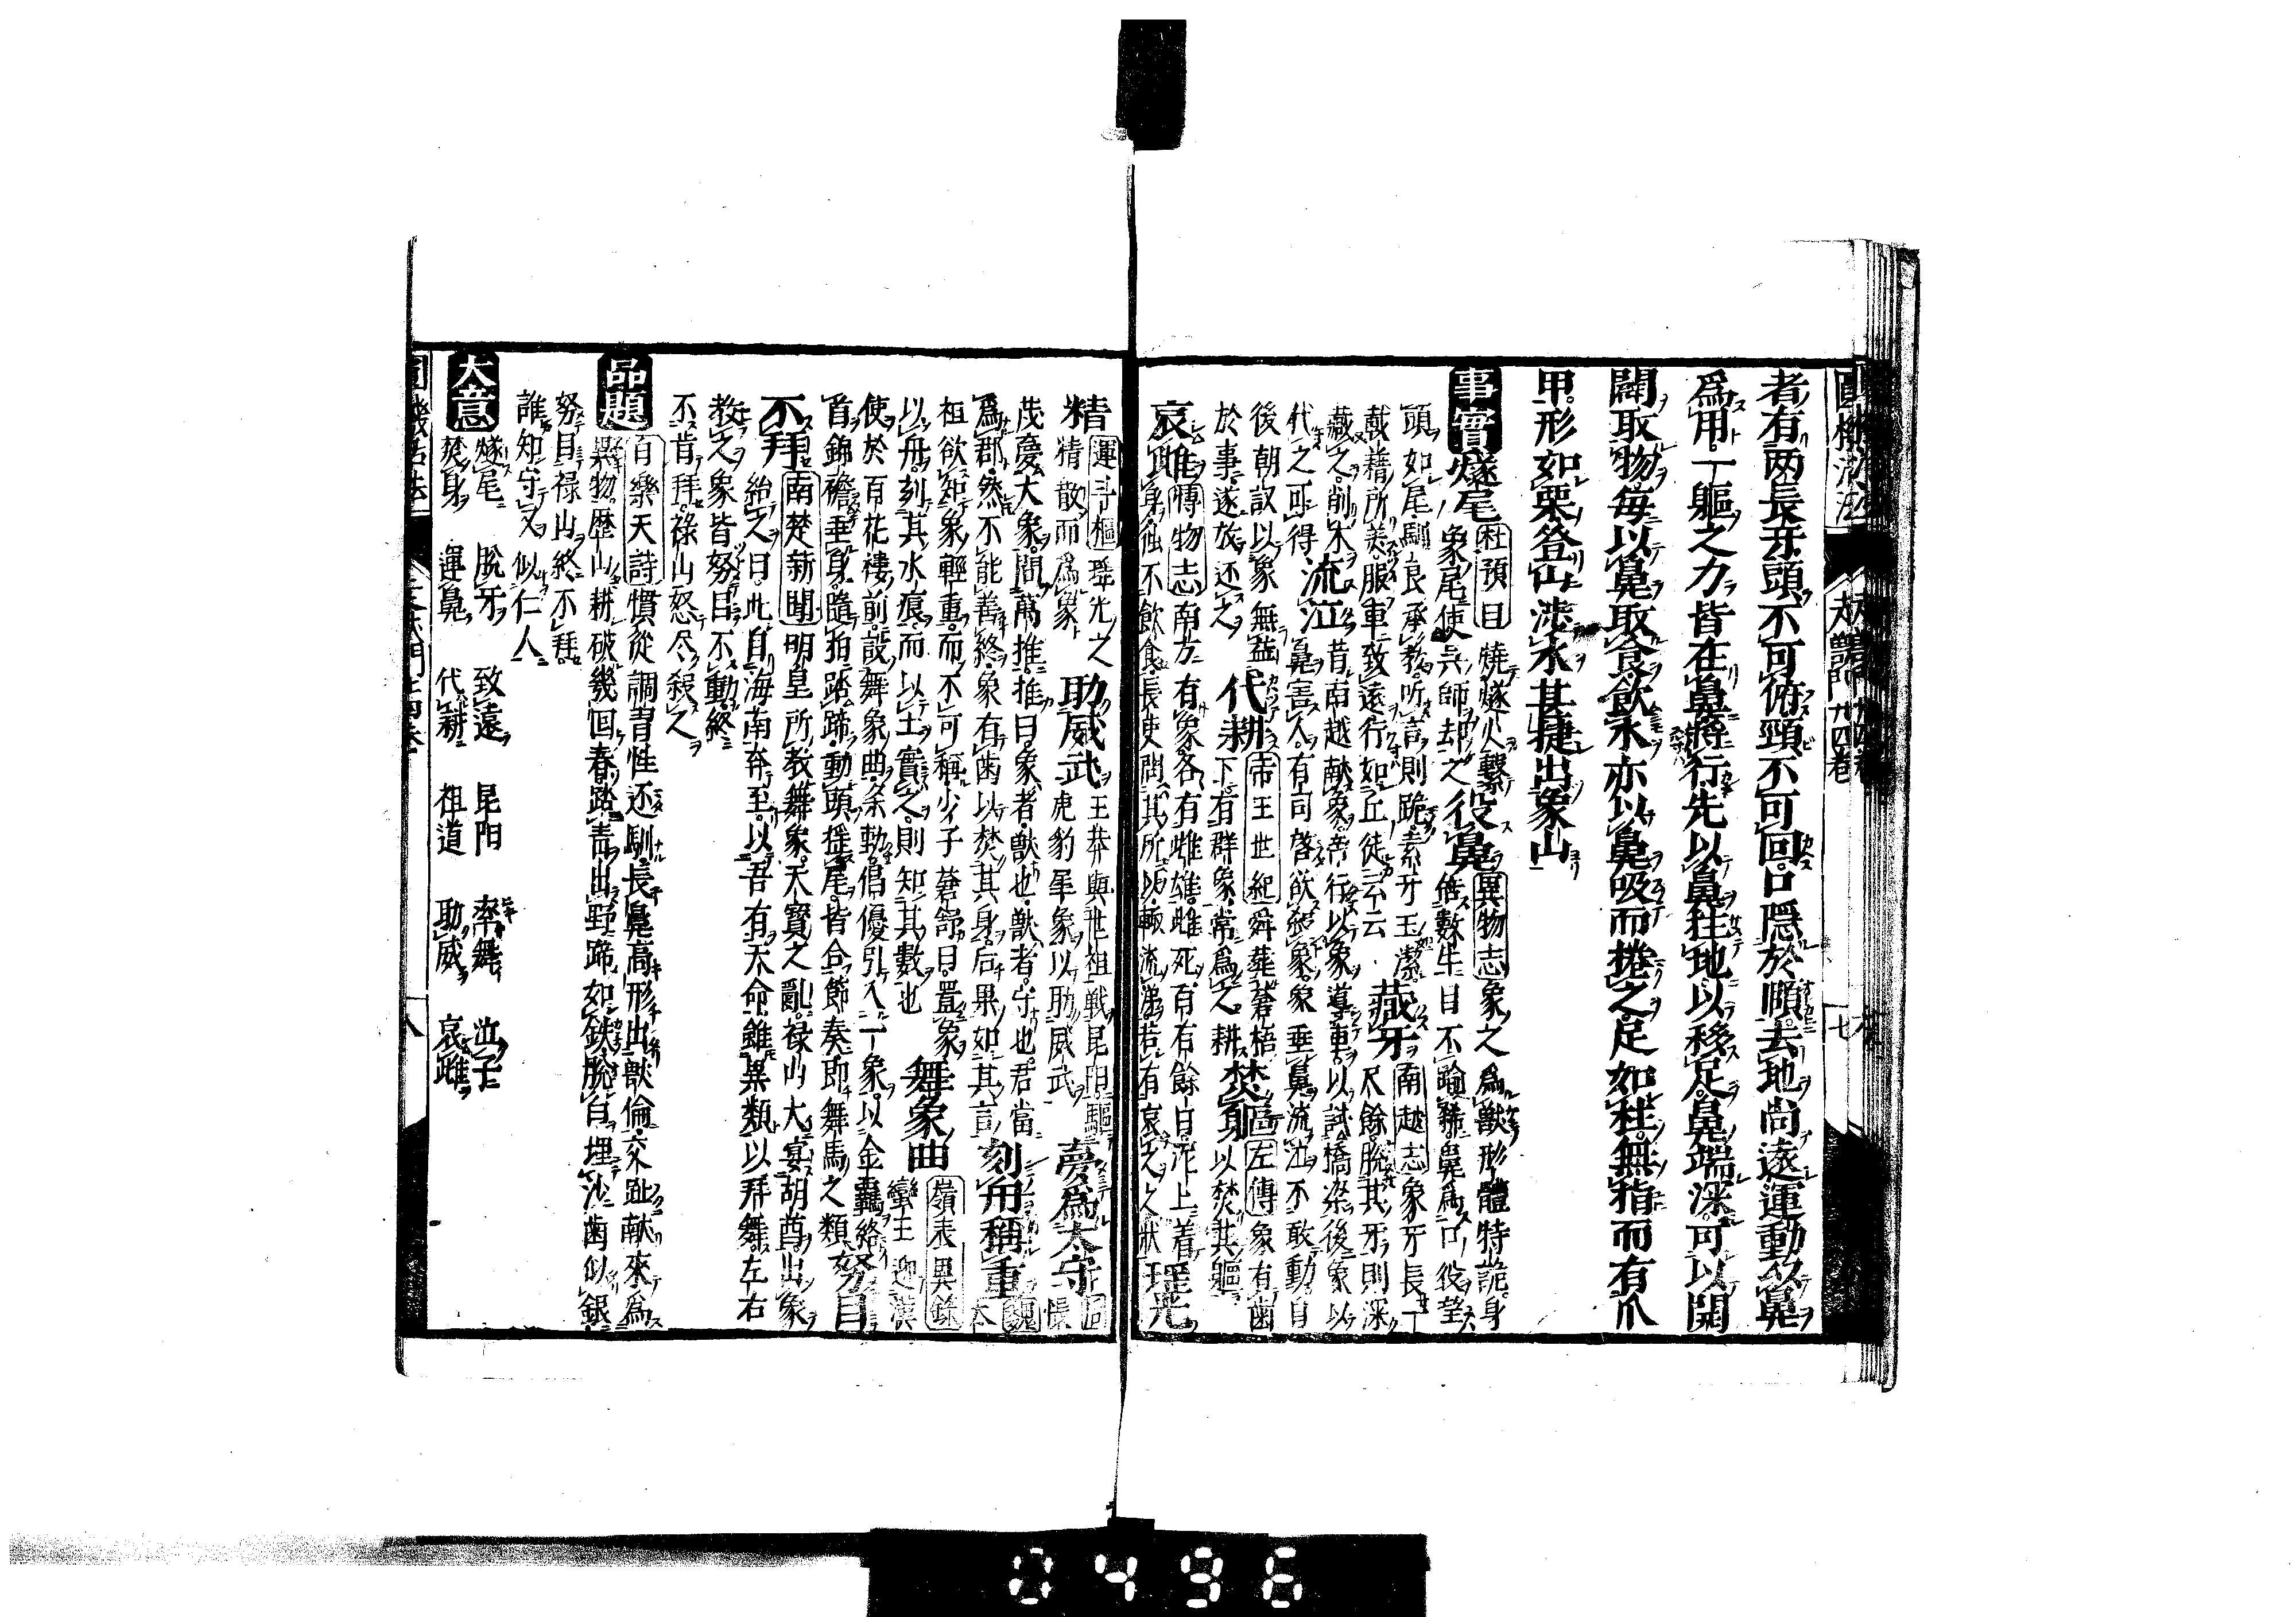 者有两長牙頭不可俯頸不可回口隱於頤去地尚遠運動以鼻
爲用一軀之力皆在鼻將行先以鼻拄地以移足鼻端深可以開
闔取物每以鼻取食飲水亦以鼻吸而捲之足如柱無指而有爪
甲形如栗登山渉水其捷出象山
事實 燧尾 杜預曰燒燧火繫象尾使兵師却之 役鼻 異物志象之爲獸形體特詭身倍數牛目不踰豨鼻爲口役望
頭如尾馴良承教听言則跪素牙玉潔載藉所美服車致遠行如丘徒云云 藏牙 南越志象牙長一丈餘脫其牙則深
藏之削木代之可得 流泣 昔南越献象帝行以象導車以試橋梁後象以鼻害人有司啓欲殺象象垂鼻流泣不敢動自
後朝議以象無益於事遂放还之 代耕 帝王世紀舜葬蒼梧下有群象常爲之耕 焚軀 左傳象有齒以焚其軀
哀雌 博物志南方有象各有雌雄雌死百有餘日泥上着身独不飲食長吏問其所以輙流涕若有哀之之狀 瑶光
精 運斗樞瑶光之精散而爲象 助威武 王莽與世祖戦昆陽驅虎豹犀象以助威武 夢爲太守 張
茂夢大象問萬推推曰象者獣也獣者守也君當爲郡然不能善終象有歯以焚其身后果如其言 刻舟稱重 魏太
祖欲知象輕重而不可稱少子蒼舒曰置象以舟刻其水痕而以土實之則知其數也 舞象曲 嶺表異錄蠻王迎漢
使於百花楼前設舞象曲条動倡優引入一象以金羈絡首錦襜垂身隨拍踏蹄動頭揺尾皆合節奏即舞馬之類 努目
不拜 南楚新聞明皇所教舞象天寳之亂禄山大宴胡酋出象紿之曰此自海南奔至以吾有天命雖異類以拜舞左右
教之象皆努目不動終不肯拜禄山怒尽殺之
品題 百樂天詩慣從調習性还馴長鼻高形出獣倫交趾献來爲異物歴山耕破幾回春踏青出野蹄如鉄脫白埋沙歯似銀
努目禄山終不拜誰知守义似仁人
大意 燧尾 脫牙 致遠 昆阳 率舞 泣子
焚身 運鼻 代耕 祖道 助威 哀雌